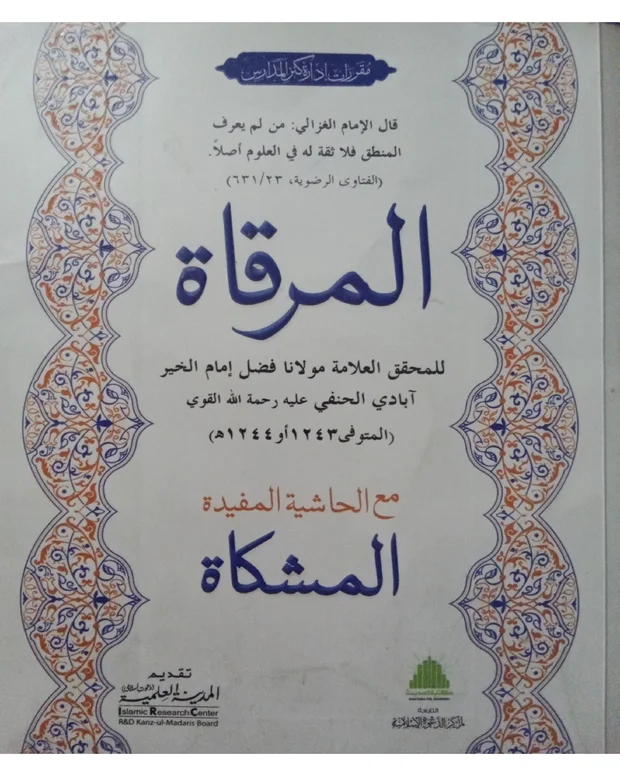 مقررات إدارة كنز المدارس
قال الإمام الغزالي: من لم يعرف
المنطق فلا ثقة له في العلوم أصلاً.
(الفتاوى الرضوية، ٢٣/٦٣١)
المرقاة
للمحقق العلامة مولانا فضل إمام الخير
آبادي الحنفي عليه رحمة الله القوي
(المتوفى ١٢٤٣ أو ١٢٤٤ﻫ)
مع الحاشية المفيدة
المشكاة
تقديم
المدينة العلمية (دعوت اسلامی)
Islamic Research Center
R&D Kanz-ul-Madaris Board
مكتبة المدينة
التابعة
لمركز الدعوة الإسلامية